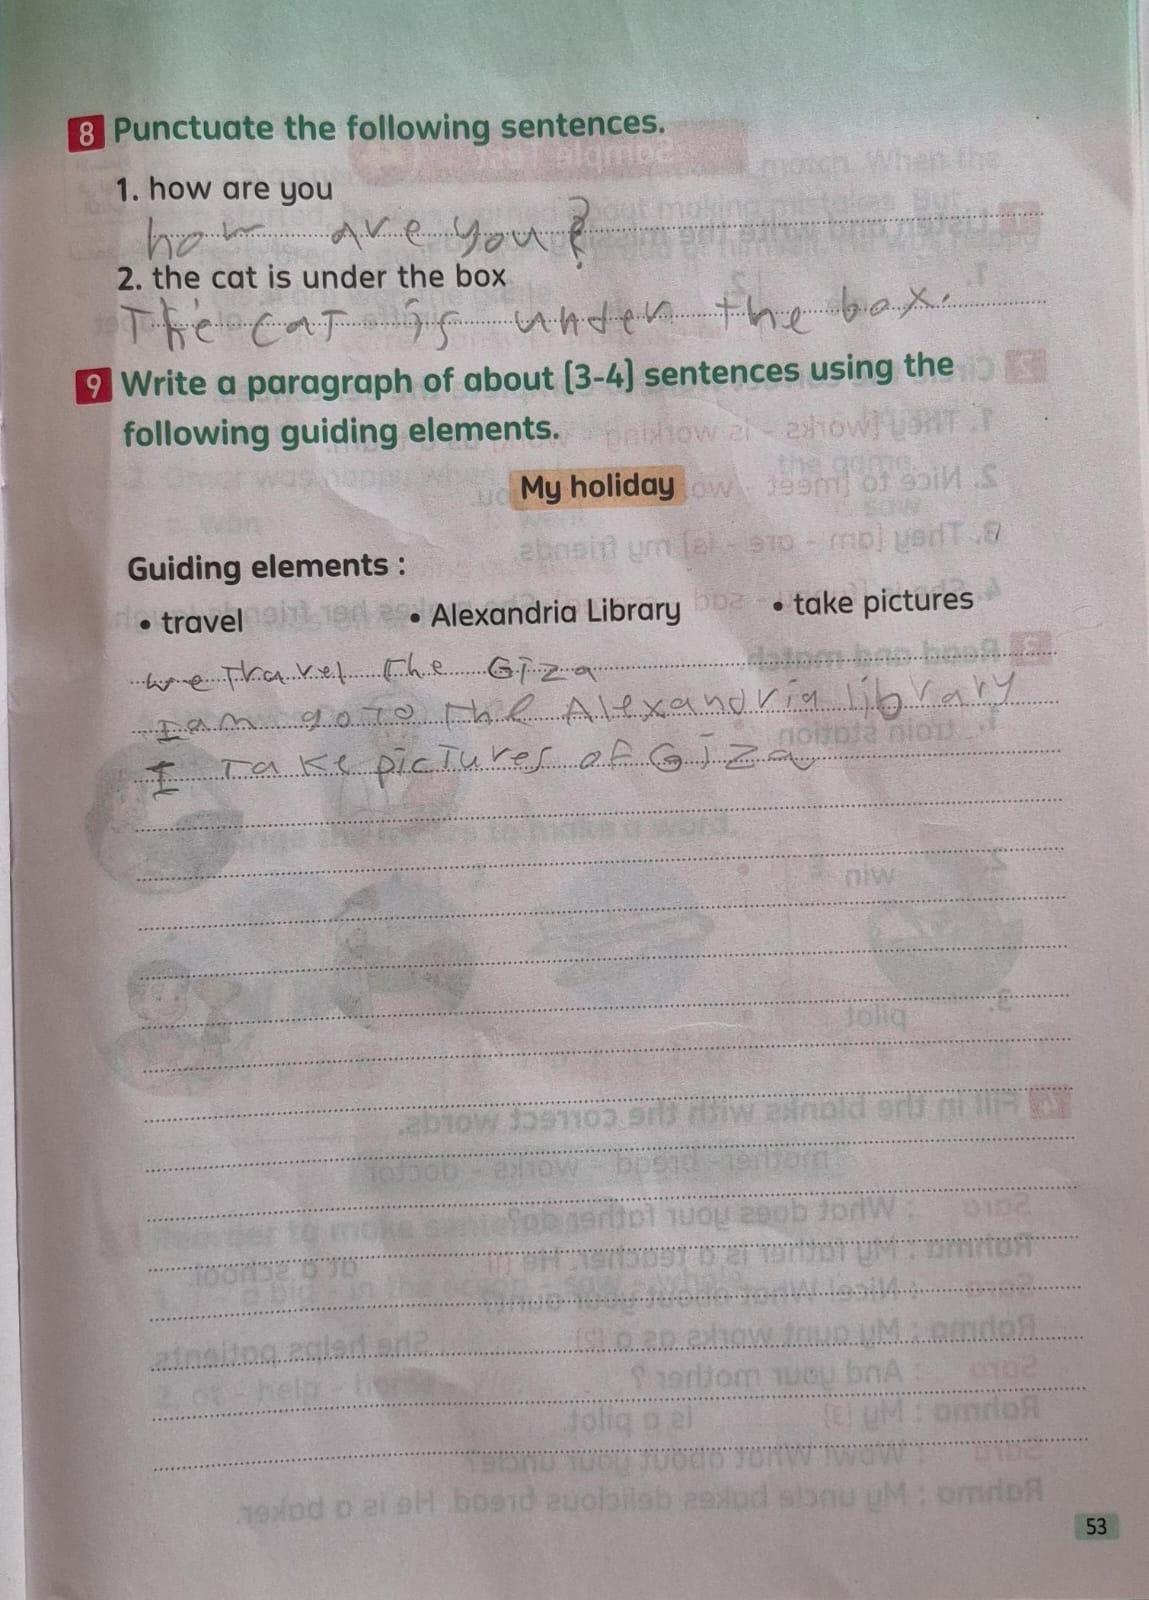 8 Punctuate the following sentences.
1. how are you
how are you?
2. the cat is under the box
The cat is under the box.
9 Write a paragraph of about (3-4) sentences using the
following guiding elements.
My holiday
Guiding elements :
• travel • Alexandria Library • take pictures
we travel the Giza
I am go to the Alexandria library
I take pictures of Giza
53